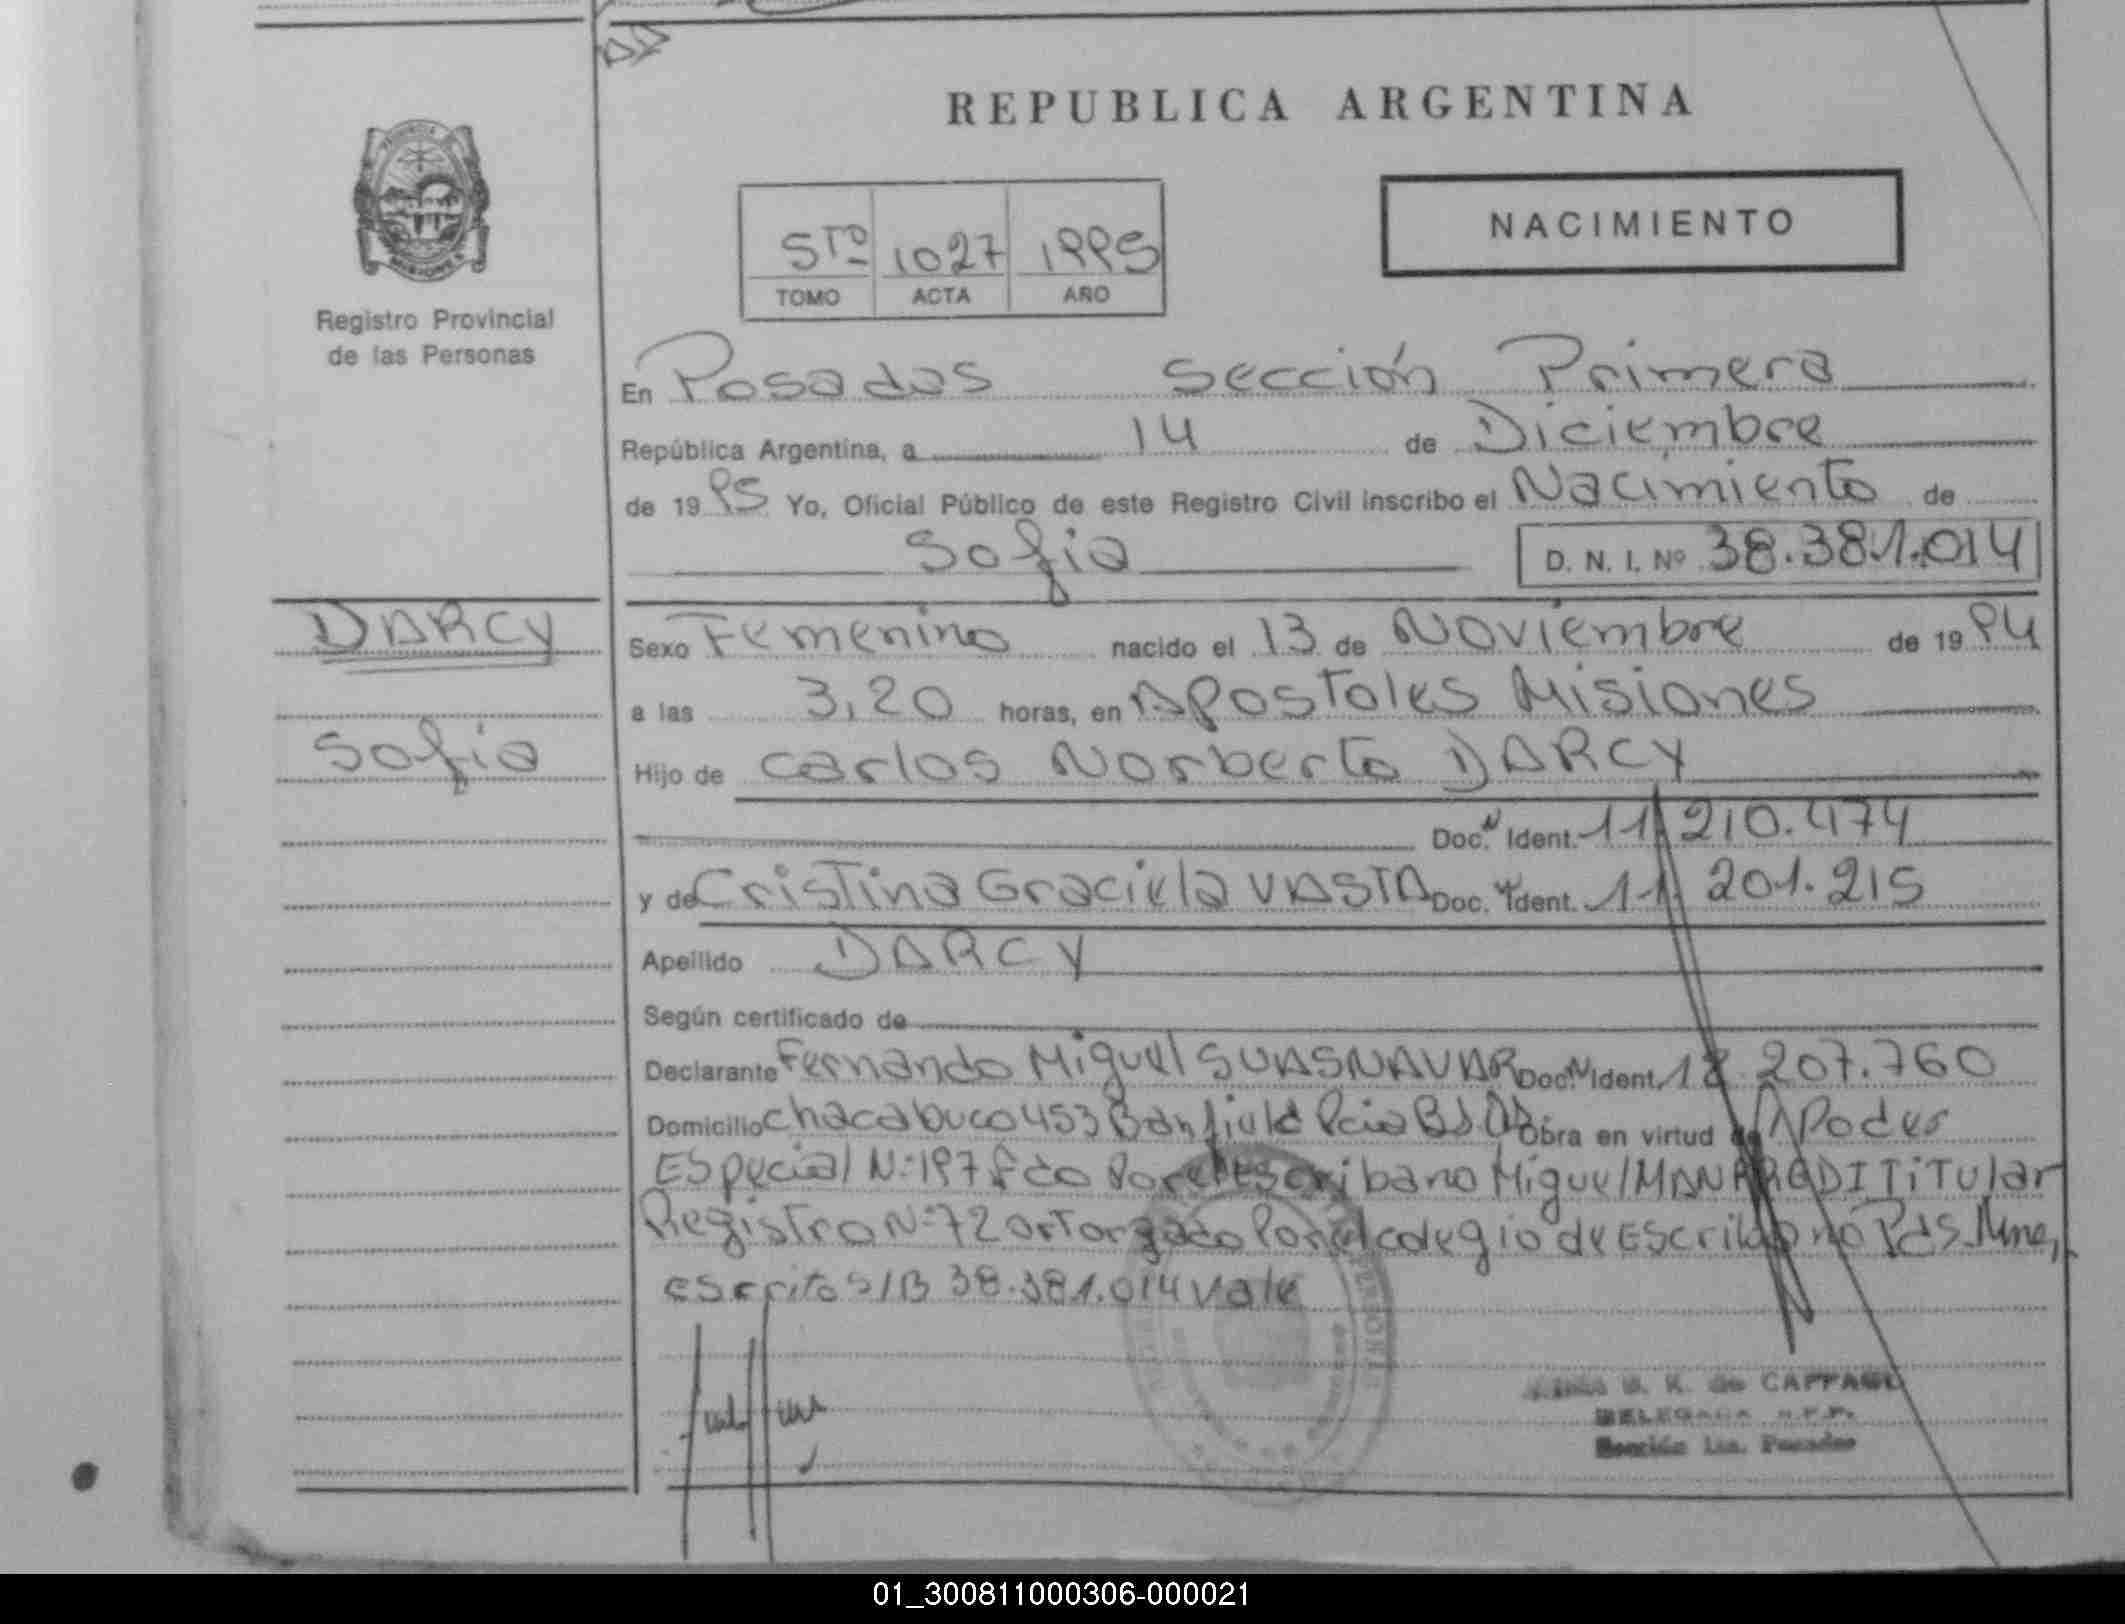 REPUBLICA ARGENTINA
NACIMIENTO
5to 1027 1995
TOMO ACTA AÑO
MISIONES
Registro Provincial
de las Personas
En Posadas Sección Primera
República Argentina, a 14 de Diciembre
de 1995 Yo, Oficial Público de este Registro Civil inscribo el Nacimiento de
Sofia D. N. I. Nº 38.381.014
DARCY
Sofia
Sexo Femenino nacido el 13 de Noviembre de 1994
a las 3,20 horas, en Apostoles Misiones
Hijo de Carlos Norberto DARCY
Doc. N Ident. 11.210.474
y de Cristina Graciela VASTA Doc. N Ident. 11.201.215
Apellido DARCY
Según certificado de
Declarante Fernando Miguel SUASNAVAR Doc. N Ident. 18.207.760
Domicilio Chacabuco 453 Banfield Pcia Bs As Obra en virtud de Poder
Especial N:197 fdo Por el Escribano Miguel MANFREDI Titular
Registro N:72 ortorgado Por el colegio de Escribano Pds Mnes,
escrito S/B 38.381.014 vale
B. K. de CAFFARE
DELEGADA R.P.P.
Sección 1ra. Posadas
01_300811000306-000021